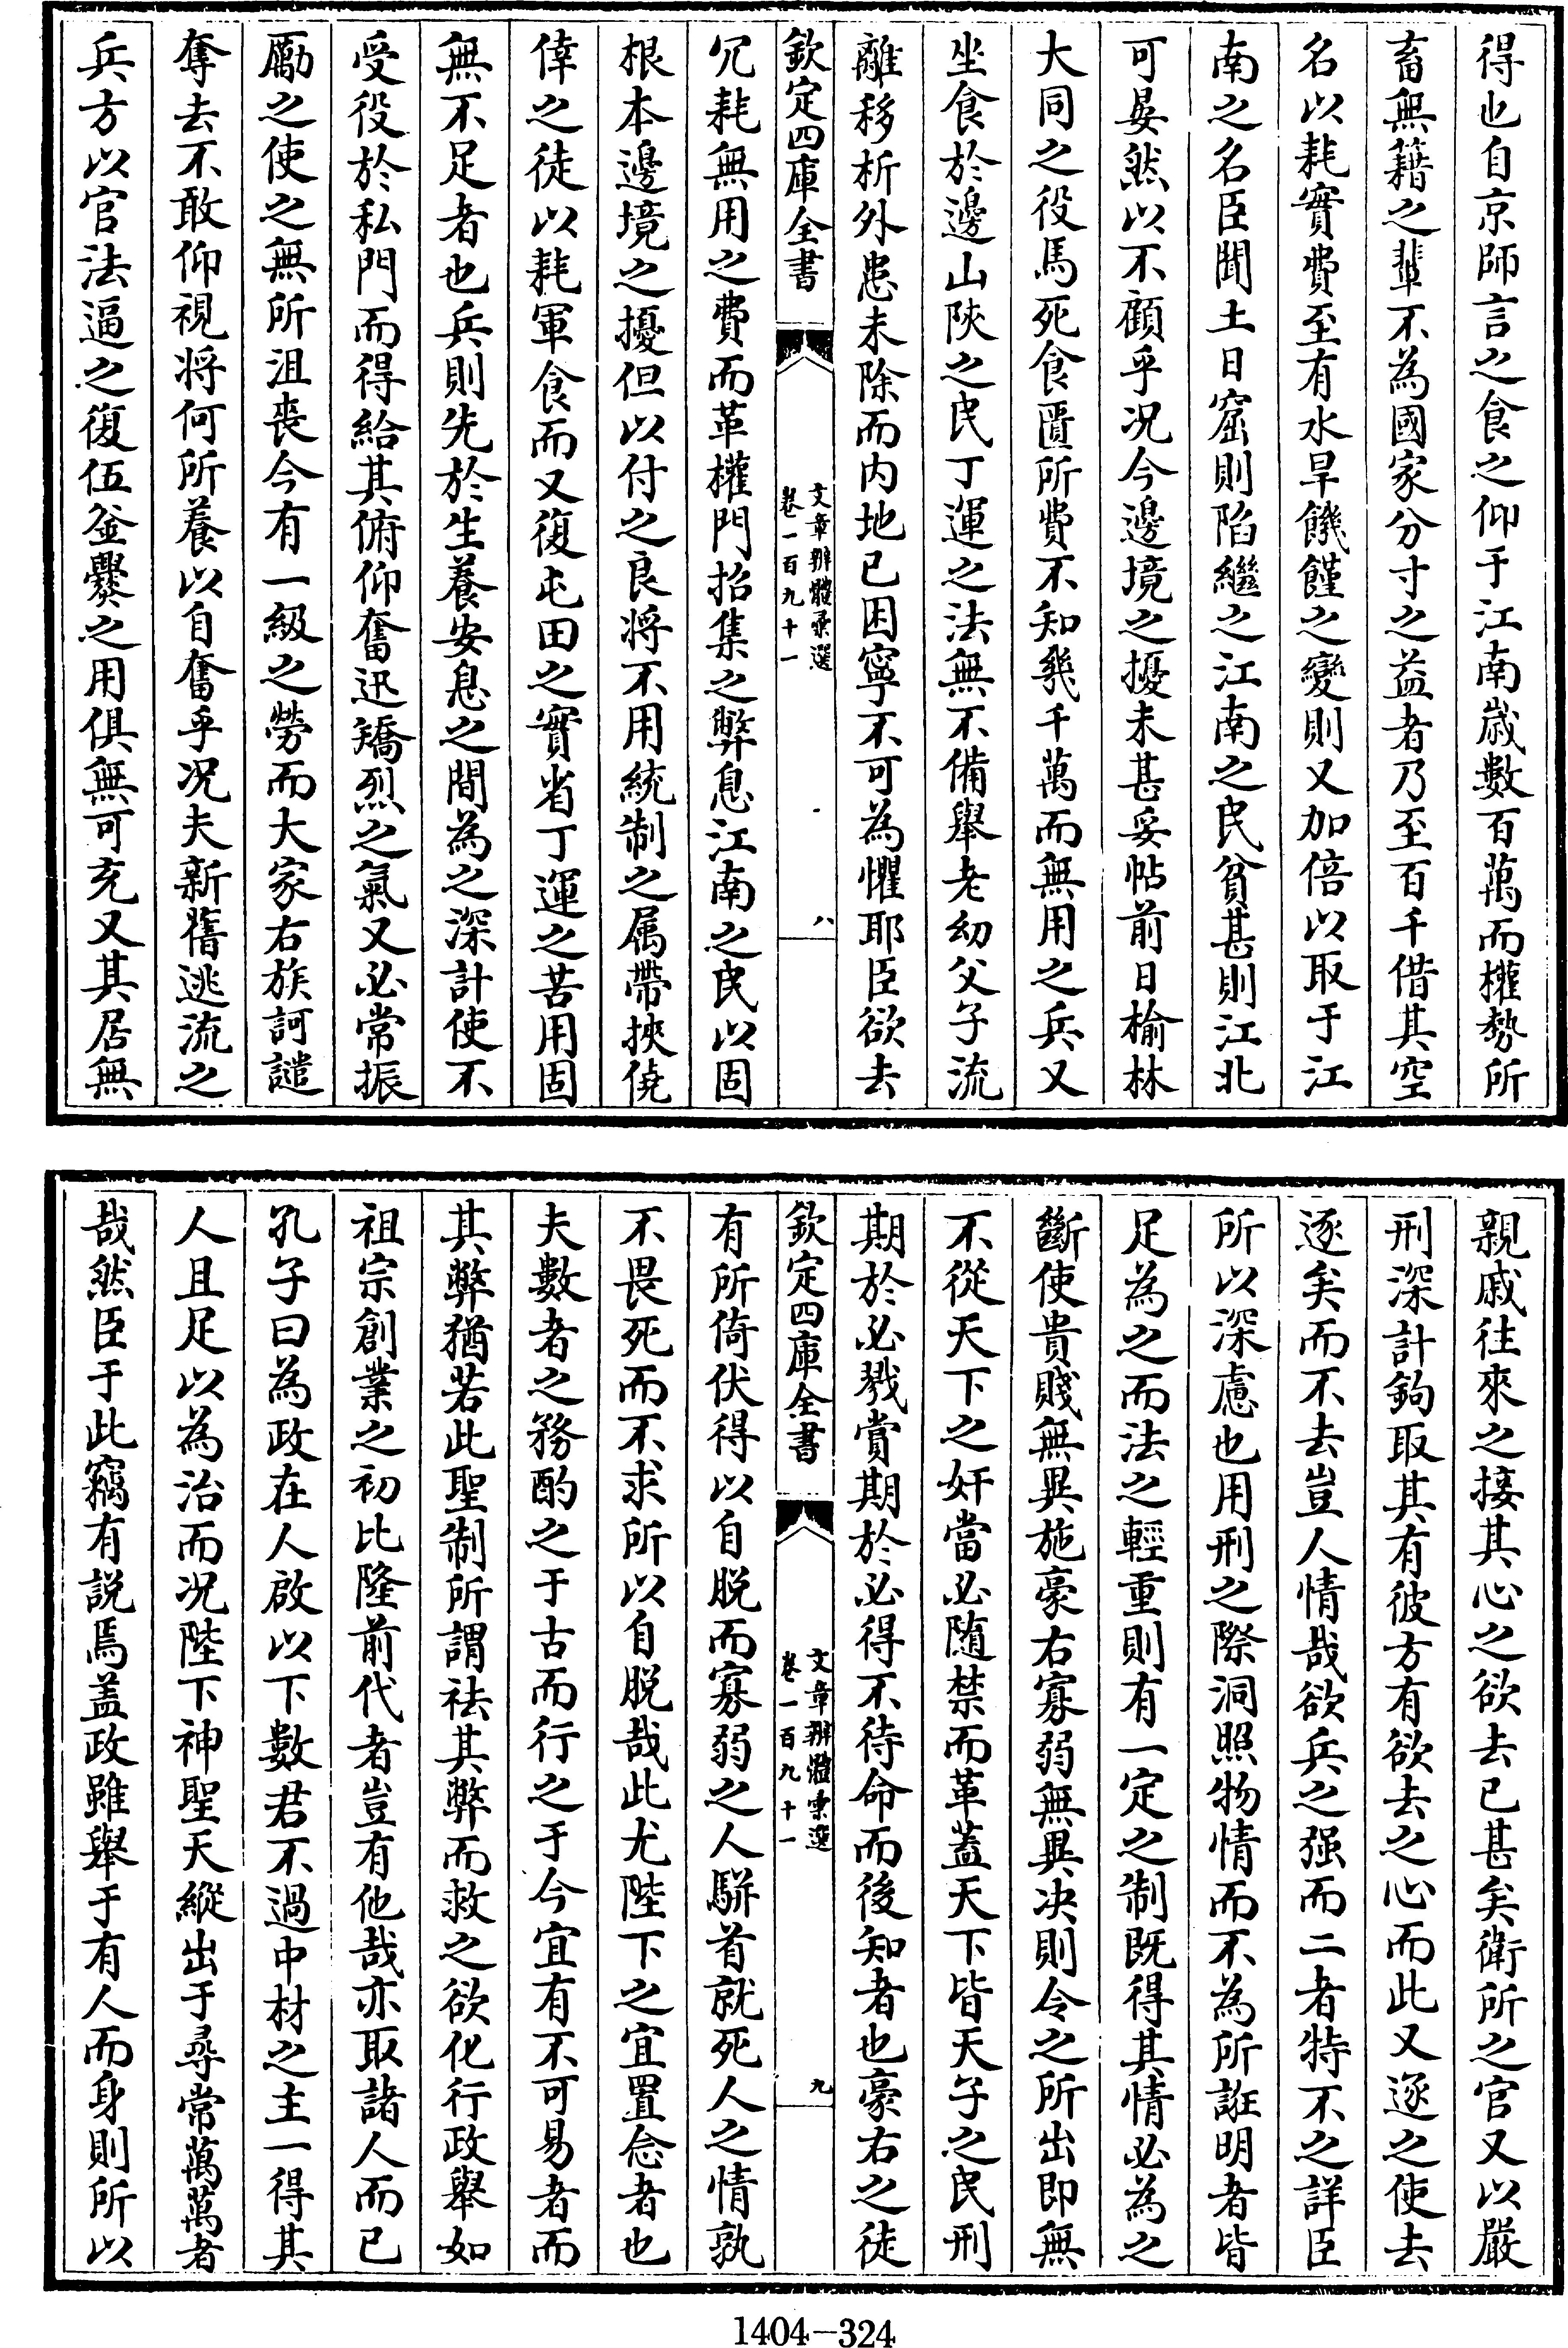 得也自京師言之食之仰于江南歲數百萬而權勢所
畜無籍之輩不為國家分寸之益者乃至百千借其空
名以耗實費至有水旱饑饉之變則又加倍以取于江
南之名臣聞土日窳則陷繼之江南之民貧甚則江北
可晏然以不顧乎况今邊境之擾未甚妥帖前日榆林
大同之役馬死食匱所費不知幾千萬而無用之兵又
坐食於邊山陜之民丁運之法無不備舉老幼父子流
離移析外患未除而内地已困寧不可為懼耶臣欲去
欽定四庫全書
文章辨體彚選
卷一百九十一
八
冗耗無用之費而革權門招集之弊息江南之民以固
根本邊境之擾但以付之良将不用統制之属帶挾僥
倖之徒以耗軍食而又復屯田之實省丁運之苦用固
無不足者也兵則先於生養安息之間為之深計使不
受役於私門而得給其俯仰奮迅矯烈之氣又必常振
勵之使之無所沮喪今有一級之勞而大家右族訶譴
奪去不敢仰視将何所養以自奮乎况夫新舊逃流之
兵方以官法逼之復伍釜爨之用俱無可充又其居無
親戚往來之接其心之欲去已甚矣衛所之官又以嚴
刑深計鉤取其有彼方有欲去之心而此又逐之使去
逐矣而不去豈人情哉欲兵之强而二者特不之詳臣
所以深慮也用刑之際洞照物情而不為所誑明者皆
足為之而法之輕重則有一定之制既得其情必為之
斷使貴賤無異施豪右寡弱無異决則令之所出即無
不從天下之奸當必随禁而革蓋天下皆天子之民刑
期於必戮賞期於必得不待命而後知者也豪右之徒
欽定四庫全書
文章辨體彚選
卷一百九十一
九
有所倚伏得以自脱而寡弱之人駢首就死人之情孰
不畏死而不求所以自脱哉此尤陛下之宜置念者也
夫數者之務酌之于古而行之于今宜有不可易者而
其弊猶若此聖制所謂祛其弊而救之欲化行政舉如
祖宗創業之初比隆前代者豈有他哉亦取諸人而已
孔子曰為政在人啟以下數君不過中材之主一得其
人且足以為治而况陛下神聖天縱出于尋常萬萬者
哉然臣于此竊有説焉蓋政雖舉于有人而身則所以
1404-324